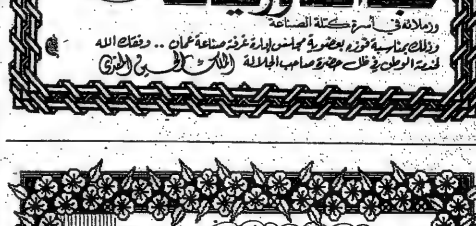 وزملائه في أسرة كتلة الصناعة
وذلك بمناسبة فوزه بعضوية مجلس إدارة غرفة صناعة عمان .. وفقك الله
لخدمة الوطن في ظل حضرة صاحب الجلالة الملك الحسين المفدى